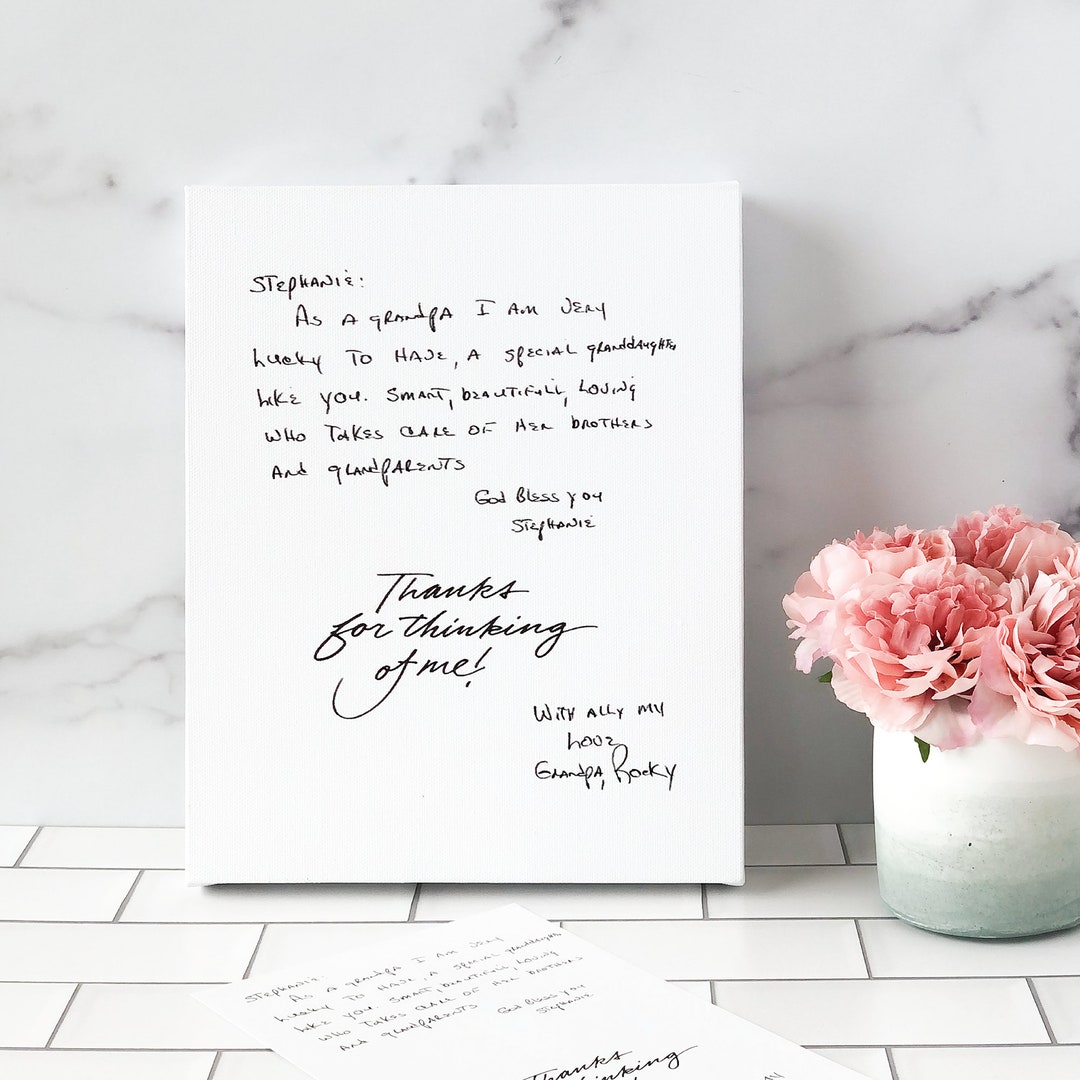 Stephanie:
As a grandpa I am very
lucky to have, a special granddaughter
like you. Smart, beautifull, loving
who takes care of her brothers
and grandparents
God Bless you
Stephanie
Thanks
for thinking
of me!
With ally my
love
Grandpa, Rocky
Stephanie:
As a grandpa I am very
lucky to have, a special granddaughter
like you. Smart, beautifull, loving
who takes care of her brothers
and grandparents
God Bless you
Stephanie
Thanks
thinking
my